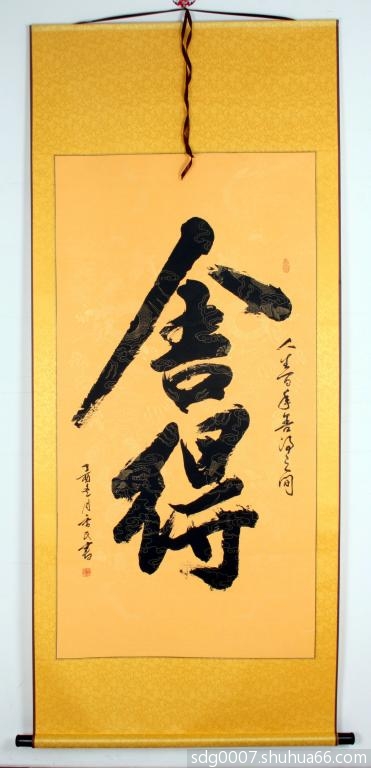 人生百年舍得之间
舍得
丁酉月民书
sdg0007.shuhua66.com